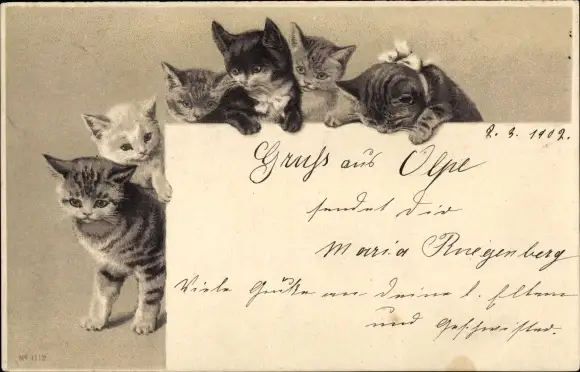 2. 3. 1902.
Gruss aus Olpe
sendet dir
Maria Ruegenberg
Viele Grüße an deine l. Eltern
und Geschwister.
No 1112